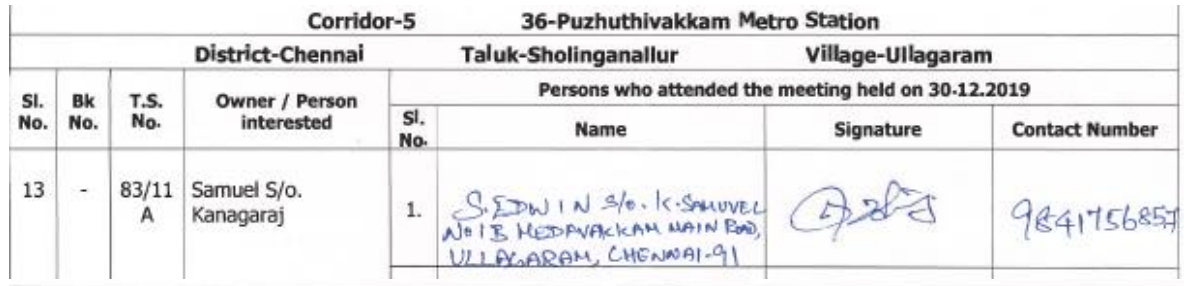 Corridor-5 36-Puzhuthivakkam Metro Station
District-Chennai Taluk-Sholinganallur Village-Ullagaram
Sl. No. Bk No. T.S. No. Owner / Person interested Persons who attended the meeting held on 30-12.2019
Sl. No. Name Signature Contact Number
13 - 83/11 A Samuel S/o. Kanagaraj 1. S. EDWIN S/o. K. SAMUVEL
NO 1B MEDAVAKKAM MAIN ROAD,
ULLAGARAM, CHENNAI-91
9841756857